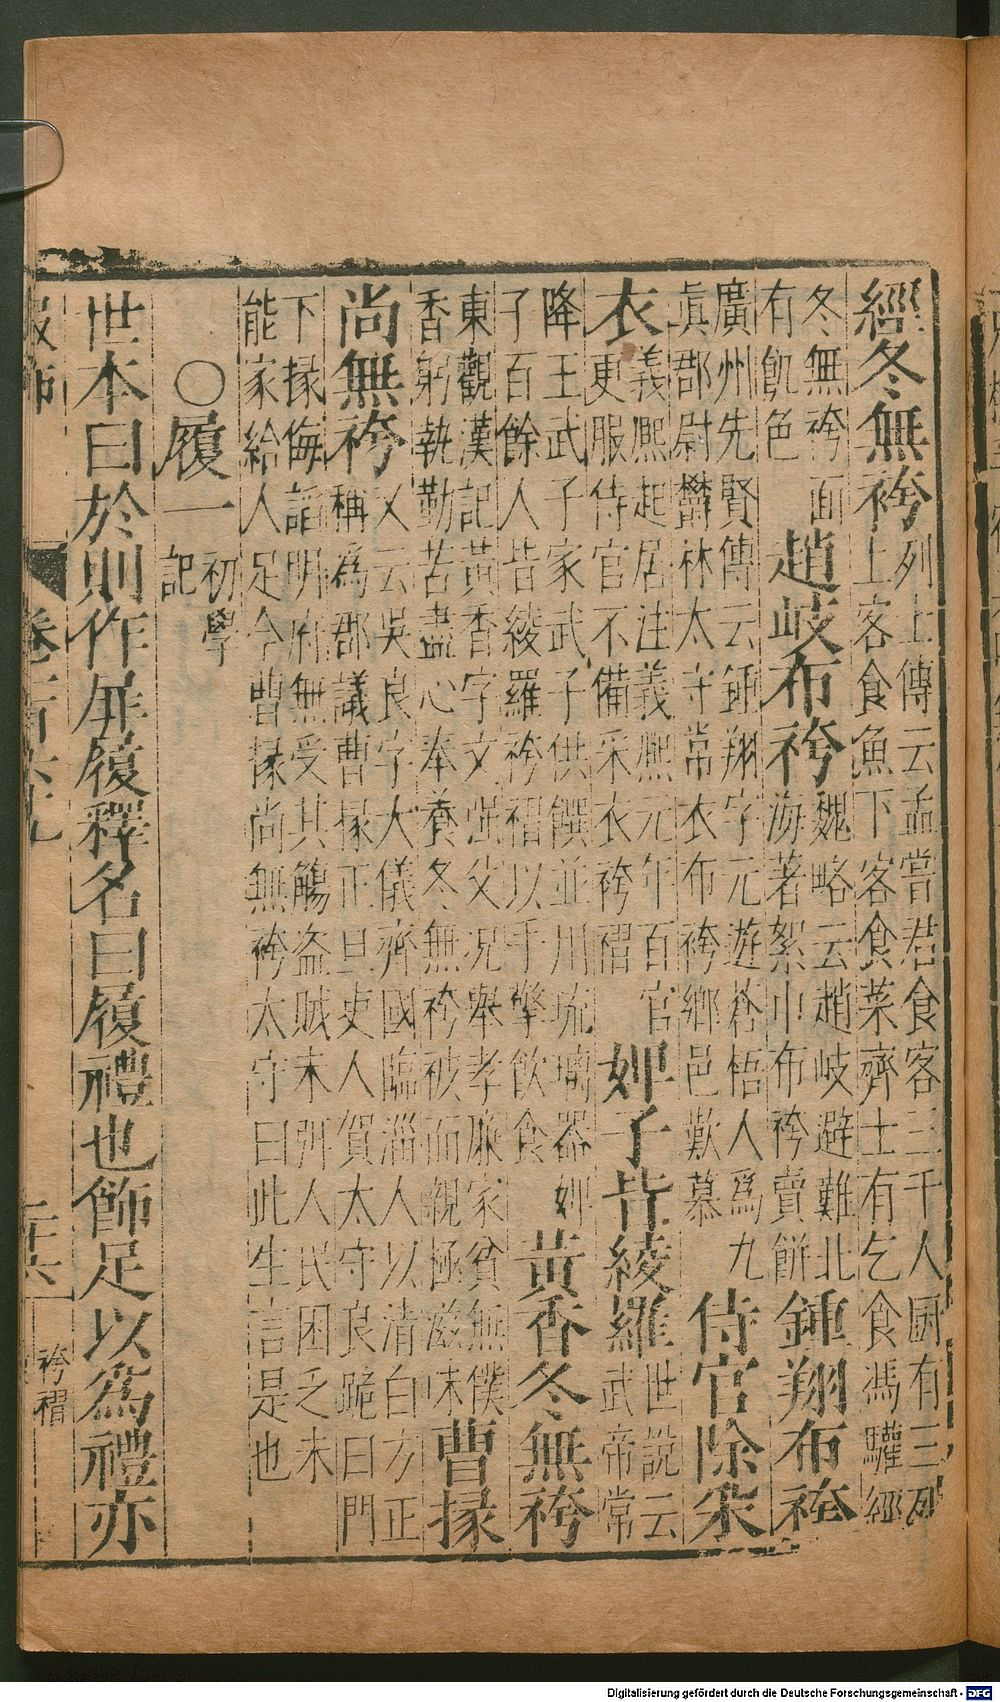 經冬無袴
列上傳云孟嘗君食客三千人厨有三列
上客食魚下客食菜齊士有乞食馮驩經
冬無袴面
有飢色
趙岐布袴
魏略云趙岐避難北
海著絮巾布袴賣餅
鍾翔布袴
廣州先賢傳云鍾翔字元遊蒼梧人爲九
眞郡尉欝林太守常衣布袴鄉邑歎慕
侍官除采
衣
義熈起居注義熈元年百官
更服侍官不備采衣袴褶
婢子皆綾羅
世說云
武帝常
降王武子家武子供饌並川琉璃器婢
子百餘人皆綾羅袴褶以手擎飲食
黃香冬無袴
東觀漢記黃香字文强父况舉孝廉家貧無僕
香躬執勤苦盡心奉養冬無袴被而親極滋味
曹掾
尚無袴
又云吳良字大儀齊國臨淄人以清白方正
稱為郡議曹掾正旦吏人賀太守良跪曰門
下掾侮謟明府無受其觴盗賊未弭人民困乏未
能家給人足今曹掾尚無袴太守曰此生言是也
○履一
初學
記
世本曰於則作屝履釋名曰履禮也飾足以爲禮亦
袴褶
Digitalisierung gefördert durch die Deutsche Forschungsgemeinschaft - DFG